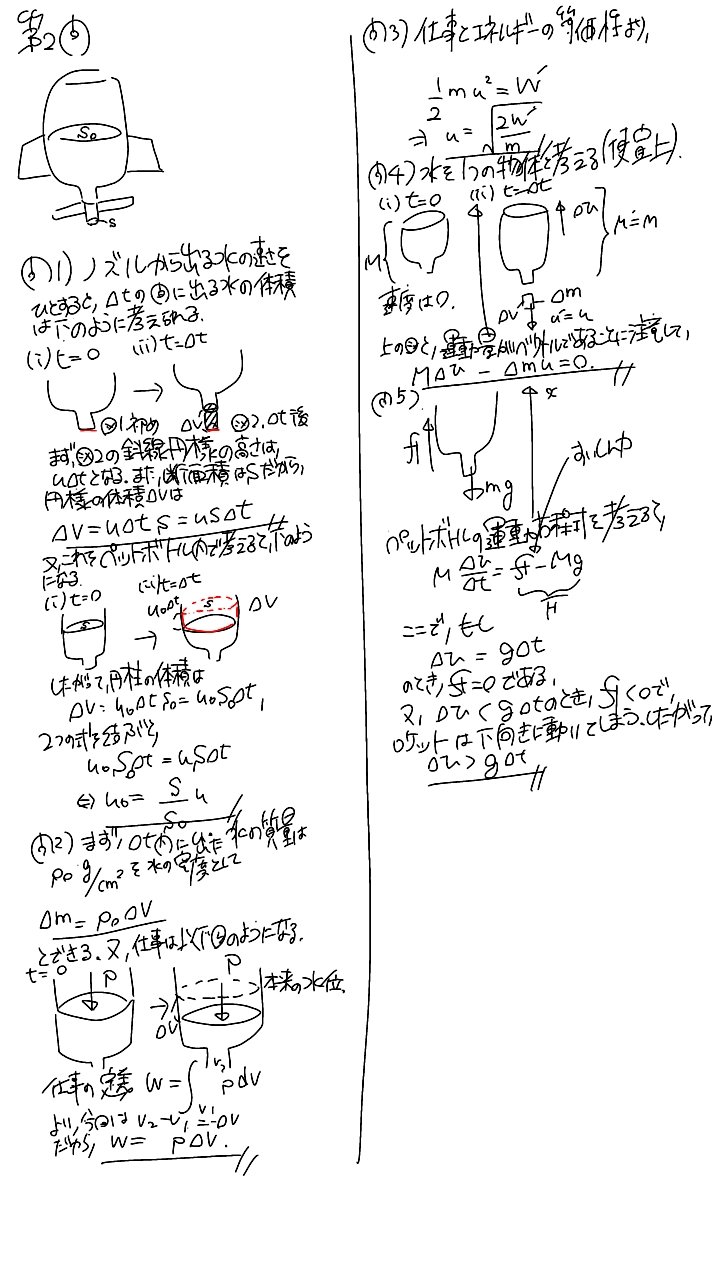 第2問
S₀
S
問1) ノズルから出る水の速さを
uとすると, Δtの間に出る水の体積
は下のように考えられる.
(i) t=0 (ii) t=Δt
ΔV
※1.初め ※2.Δt後
まず, ※2の斜線円柱の高さは,
uΔtとなる. また, 断面積はSだから,
円柱の体積ΔVは
ΔV = uΔtS = uSΔt
又, これをペットボトル内で考えると, 下のよう
になる.
(i) t=0 (ii) t=Δt
S u₀Δt S ΔV
したがって, 円柱の体積は
ΔV = u₀Δt S₀ = u₀S₀Δt,
2つの式を結ぶと,
u₀S₀Δt = uSΔt
⇔ u₀ = S/S₀ u
問2) まず, Δt内に出た水の質量は
ρ₀ g/cm² を水の密度として
Δm = ρ₀ΔV
とできる. 又, 仕事は以下のようになる.
t=0
P P 本来の水位
ΔV
仕事の定義 W = ∫ V₂ V₁ p dV
より, 今回は V₂-V₁ = -ΔV
だから, W = PΔV.
問3) 仕事とエネルギーの等価性より,
1/2 mu² = W'
⇒ u = √(2W'/m)
問4) 水を1つの物体と考える(便宜上).
(i) t=0 (ii) t=Δt
M Δu M≒M
速度は0. ΔV Δm
u=u
上の図と, 運動量がベクトルであることに注意して,
MΔu - Δmu = 0.
問5)
x
f mg おしん力
ペットボトルの運動方程式を考えると,
M Δu/Δt = f - Mg
ここで, もし
Δu = gΔt
のとき, f=0 である.
又, Δu < gΔtのとき, f<0で,
ロケットは下向きに動いてしまう. したがって,
Δu > gΔt